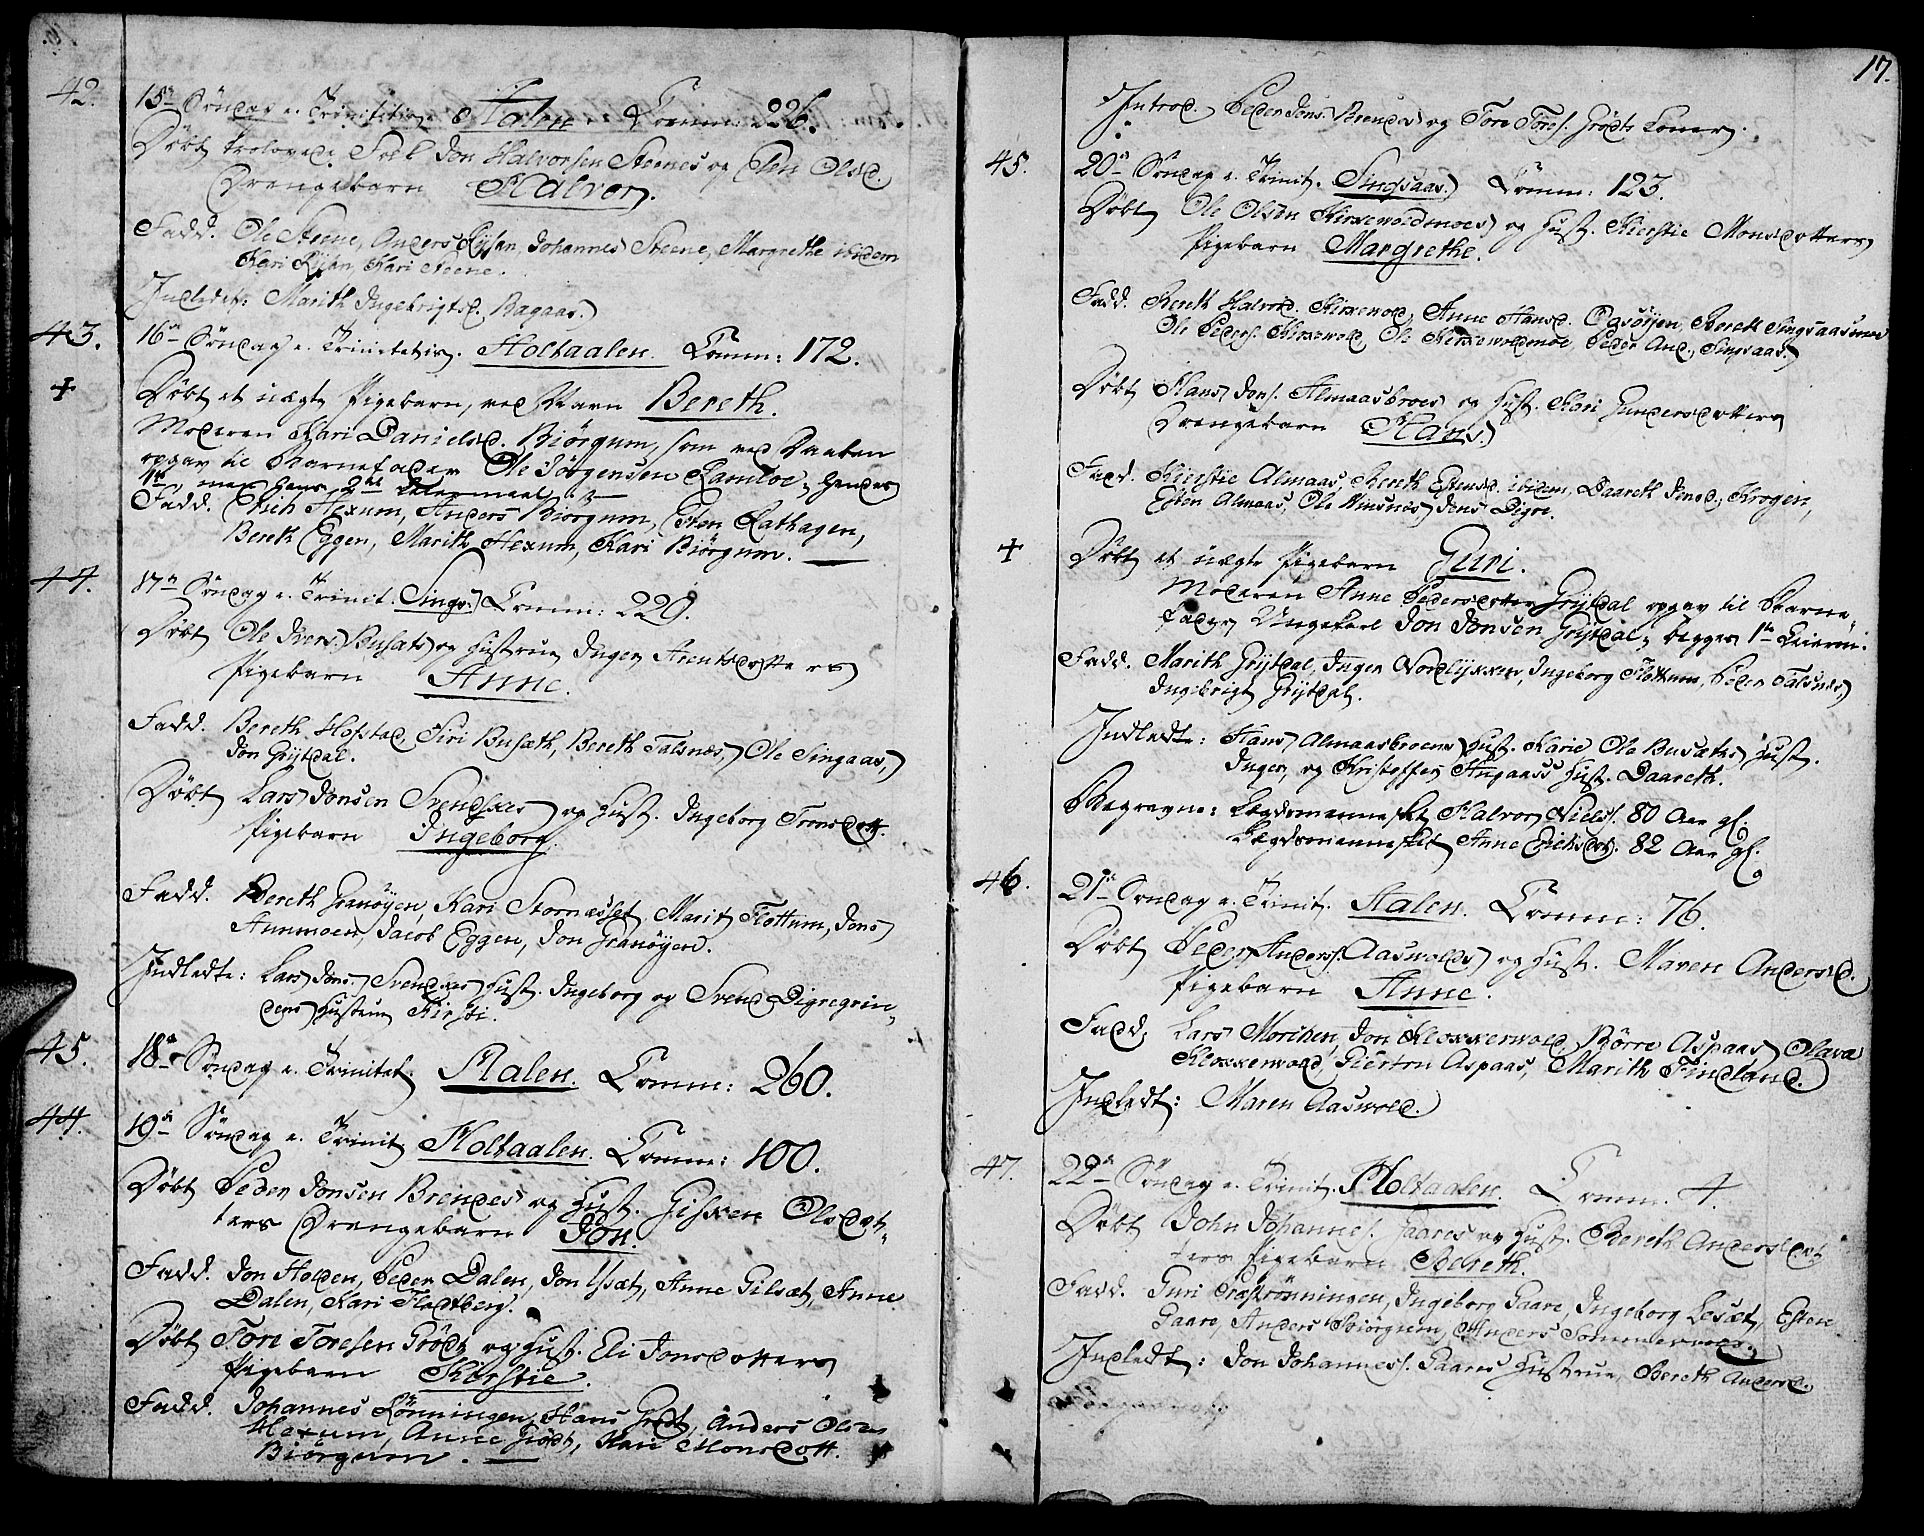 42. 15de Søndag e. Trinitatis. Aalen. Comm: 226.
Døbt trolovede Sold. Jon Halvorsen Steenes og Elen Olsd.
Drengebarn Halvor.
Fadd. Ole Steene, Anders Rysan, Johannes Steene, Margrethe ibidem
Kari Rysan, Kari Steene.
Indledt: Marith Ingebrigtsd. Bagaas.
43. 16de Søndag e. Trinitatis. Holtaalen. Comm: 172.
+ Døbt et uægte Pigebarn, ved Navn Bereth.
Moderen Kari Danielsd. Biørgum, som ved Daaben
opgav til Barnefader Ole Jørgensen Ramloe, hendes
1te, men hans 2det Leiermaal.
Fadd. Erich Hexum, Anders Biørgum, Esten Lathagen,
Bereth Eggen, Marith Hexum, Kari Biørgum.
44. 17de Søndag e. Trinit. Sings. Comm: 229.
Døbt Ole Ivers. Busæts og Hustrue Inger Arentsdotters
Pigebarn Anne.
Fadd. Bereth Hofstad, Siri Busæth, Bereth Talsnes, Ole Singaas,
Jon Grytdal.
Døbt Lars Jonsen Svendsaes og Hust. Ingeborg Tronsdott.
Pigebarn Ingeborg.
Fadd. Bereth Granøyen, Kari Stornesset, Marit Flottum, Jons
Aunmoen, Jacob Eggen, Jon Granøyen.
Indledte: Lars Jons. Svendsaes Hust. Ingeborg og Svend Digregrin-
dens Hustrue Kirsti.
45. 18de Søndag e. Trinitat. Aalen. Comm: 260.
44. 19de Søndag e. Trinit. Holtaalen. Comm: 100.
Døbt Peder Jonsen Brendes og Hust. Gisken Olsdat-
ters Drengebarn Jon.
Fadd. Jon Holden, Peder Dalen, Jon Ysæt, Anne Gilsæt, Anne
Dalen, Kari Flodtberg.
Døbt Tore Toresen Grødt og Hust. Eli Jonsdotters
Pigebarn Kirstie.
Fadd. Johannes Rønningen, Hans Grødt, Anders Olsen
Hexum, Anne Grødt, Kari Monsdott.
Biørgum.
17.
Introd. Peder Jons. Brendes og Tore Tores. Grødts Koner.
45. 20de Søndag e. Trinit. Singsaas. Comm: 123.
Døbt Ole Olsen Kirkevoldmoes og Hust. Kierstie Monsdotters
Pigebarn Margrethe.
Fadd. Bereth Halvord. Kirkevold, Anne Hansd. Oasøyen, Bereth Singsaasmoe
Ole Peders. Kirkevold, Ole Kirkevoldmoe, Peder And. Singsaas.
Døbt Hans Jons. Almaasbroes og Hust. Kari Gundersdotters
Drengebarn Hans.
Fadd. Kierstie Almaas, Bereth Estensd. ibidem, Daareth Jonsd. Krogen,
Esten Almaas, Ole Winsnes, Jens Digre.
+ Døbt et uægte Pigebarn Guri.
Moderen Anne Pedersdotter Grytdal opgav til Barne-
fader Ungekarl Jon Jonsen Grytdal, begges 1te Leierm.
Fadd. Marith Grytdal, Inger Nordlykken, Ingeborg Flottum, Peder Talsnes,
Ingebrigt Grytdal.
Indledte: Hans Almaasbroens Hust. Karie Ole Busæths Hust.
Inger, og Kristoffer Aagaass Hust. Daareth.
Begravne: Lægdsmennesket Halvor Niels. 80 Aar gl.
Lægdsmennesket Anne Erichsd. 82 Aar gl.
46. 21de Søndag e. Trinit. Aalen. Comm: 76.
Døbt Peder Anders. Aasvolds og Hust. Maren Andersd.
Pigebarn Anne.
Fadd. Lars Morchen, Jon Klokkervold, Børre Aspaas, Olava
Klokkervold, Gierton Aspaas, Marith Findland.
Indledt: Maren Aasvold.
47. 22de Søndag e. Trinit. Holtaalen. Comm. 4.
Døbt John Johannes. Gaares og Hust. Bereth Andersdot-
ters Pigebarn Bereth.
Fadd. Guri Græsrønningen, Ingeborg Gaare, Ingeborg Lesæt, Esten
Gaare, Anders Biørgum, Anders Sommervold.
Indledt: Jon Johannes. Gaares Hustrue Bereth Andersd.